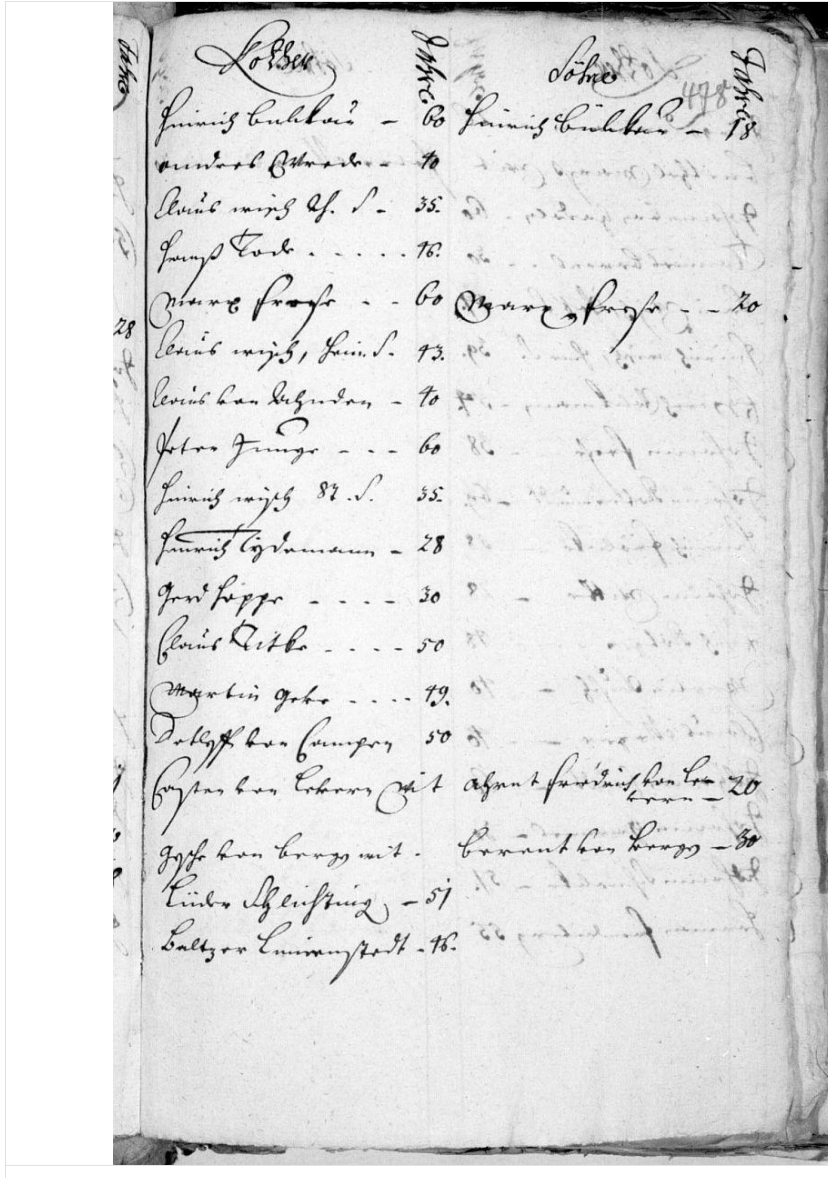 Jahre Söhne Jahre
478
Hinrich bulckau - 60 Hinrich Bulckau - 18
andres Wrede - 40
Claus wisch Th. S - 35.
Hanß Tode . . . . . 46.
Marx Frese - - 60 Marx Frese - - 20
28
Claus wisch, Hein. S. 43.
Claus von Ahnden - 40
Peter Junge - - - 60
Hinrich wisch S. 35.
Hinrich Tydemann - 28
Gerd Hoppe - - - - 30
Claus Titke - - - - 50
Martin Geke - - - - 49.
Detleff von Campen 50
Casten von Lekern Wit Ahrent Friedrich von Le-
kern - 20
Gesche von bergen wit. berent von Bergen - 30
Lüder Schlichting, - 51
Baltzer - 46.